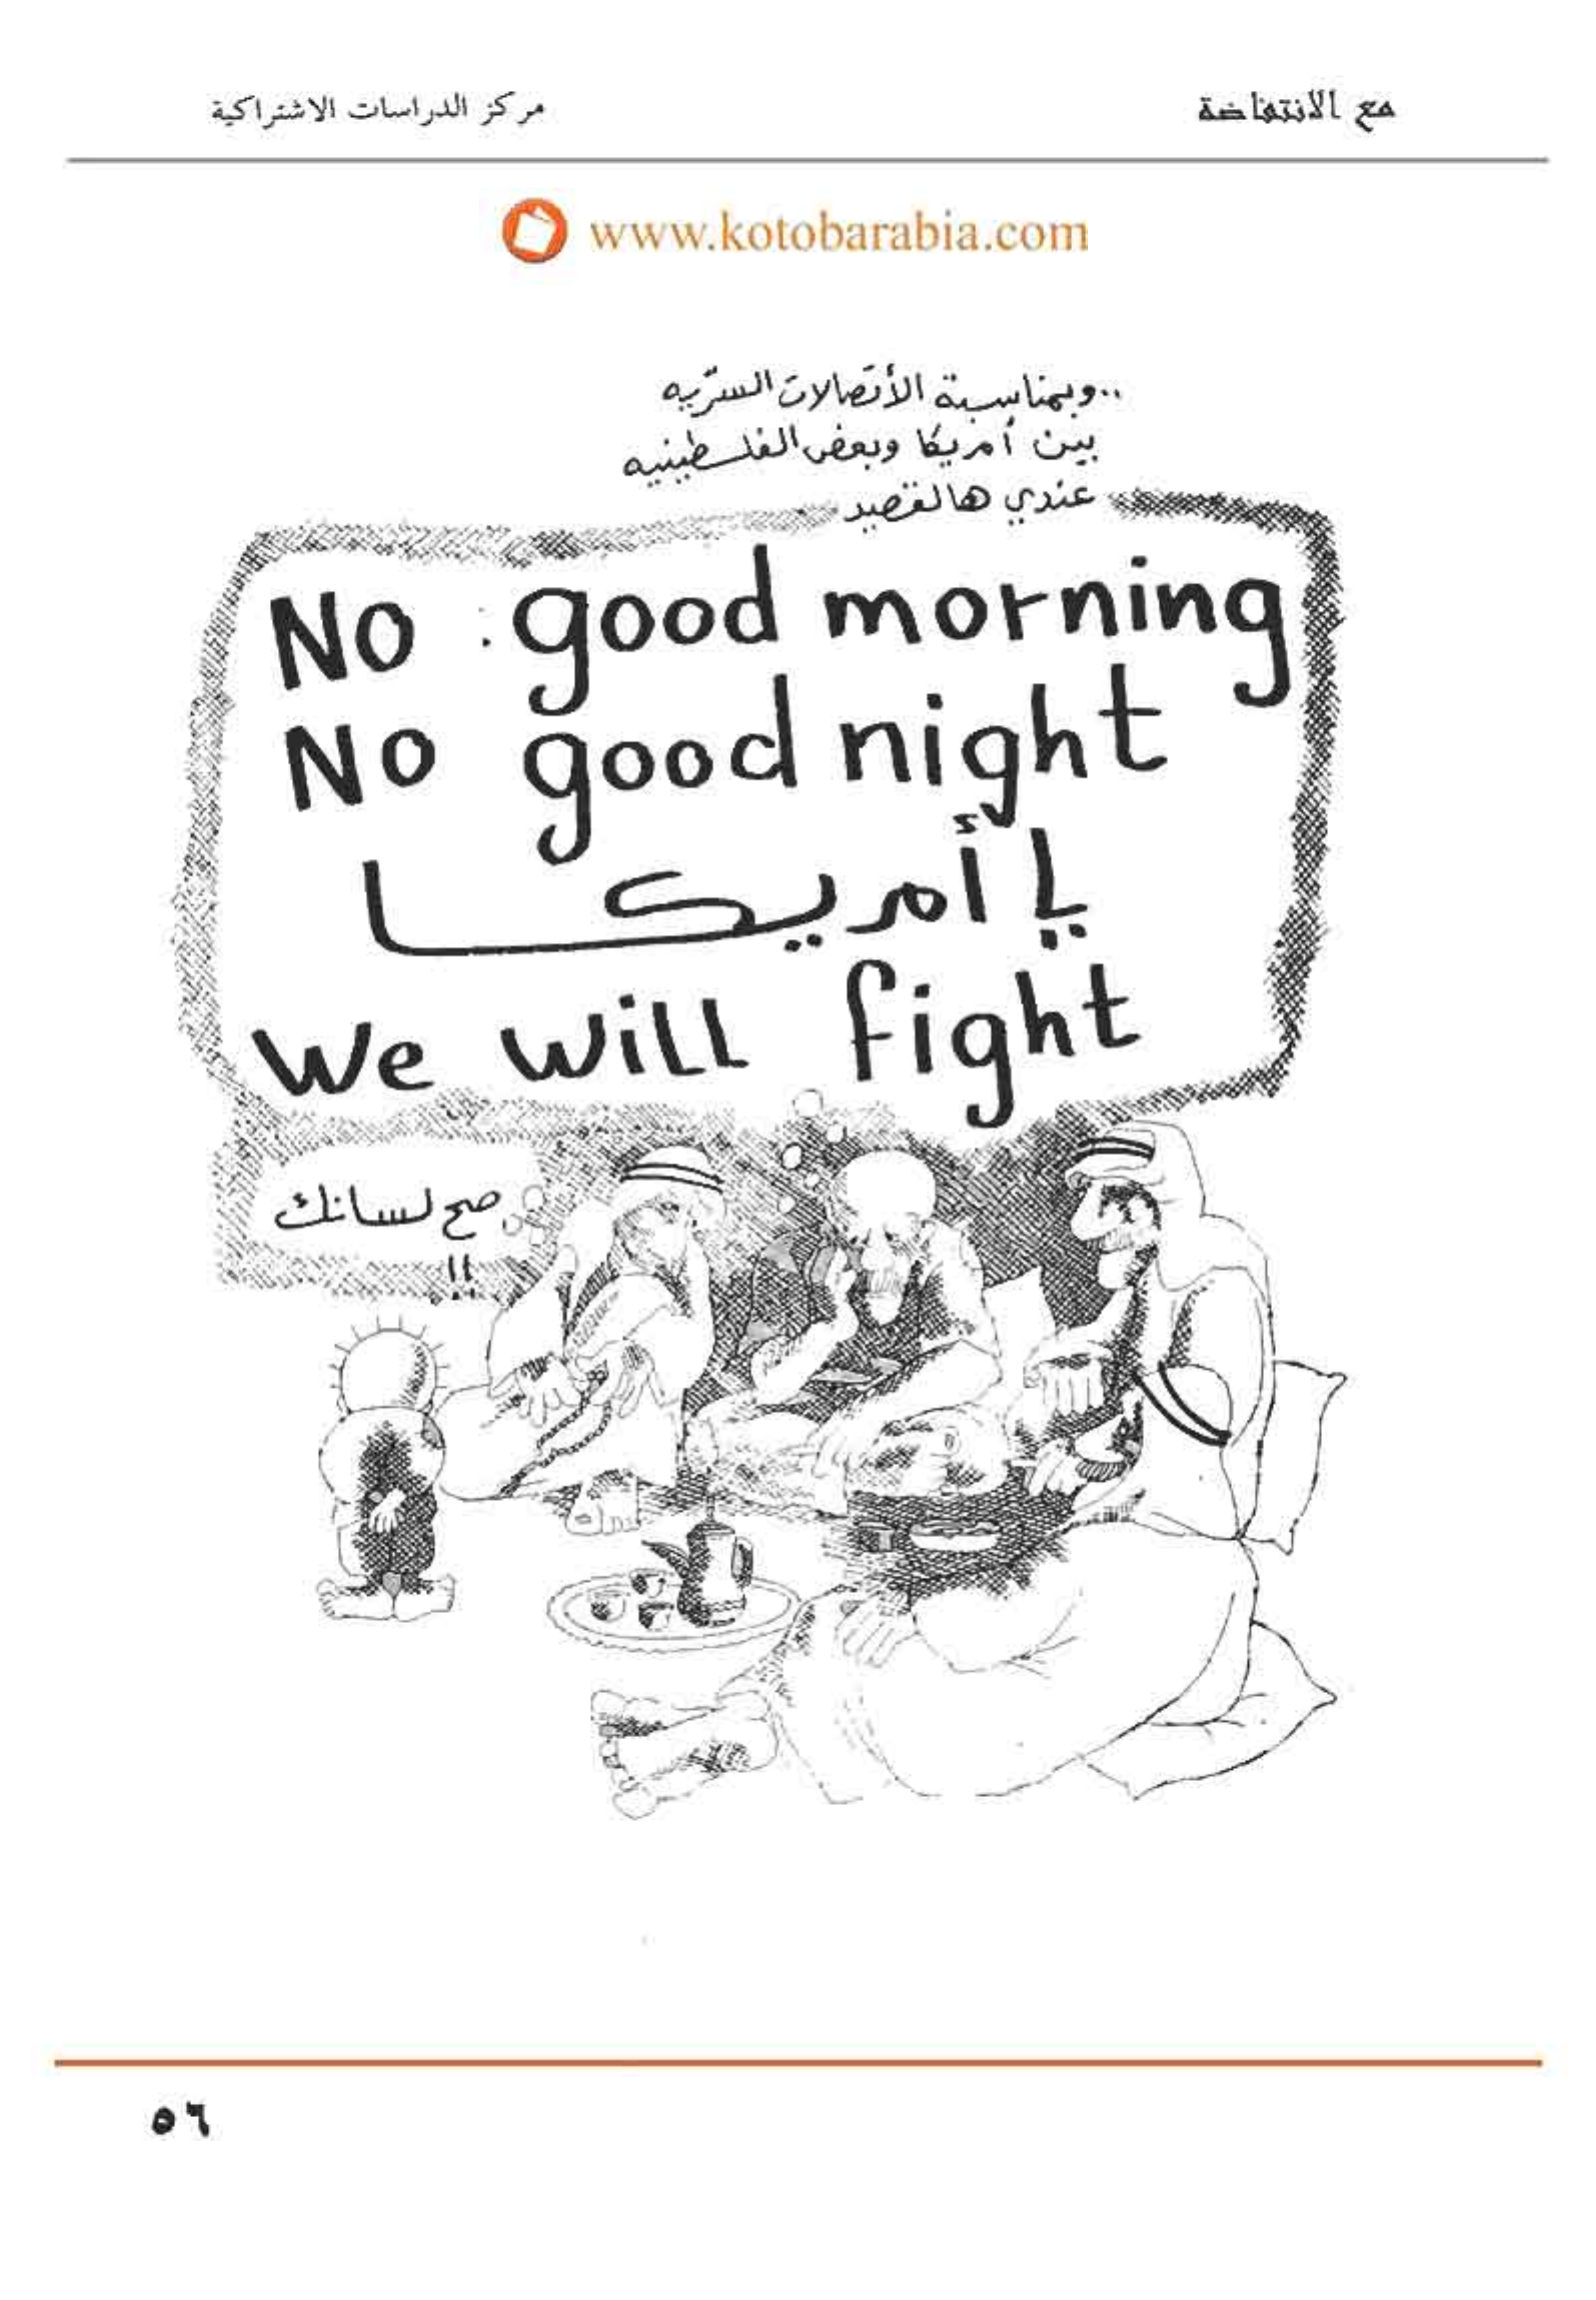 مع الانتفاضة
مركز الدراسات الاشتراكية
www.kotobarabia.com
..وبمناسبة الأتصالات السرّيه
بين أمريكا وبعض الفلسطينيه
عندي هالقصيد
No good morning
No good night
يا أمريكا
We will fight
صح لسانك
!!
٥٦